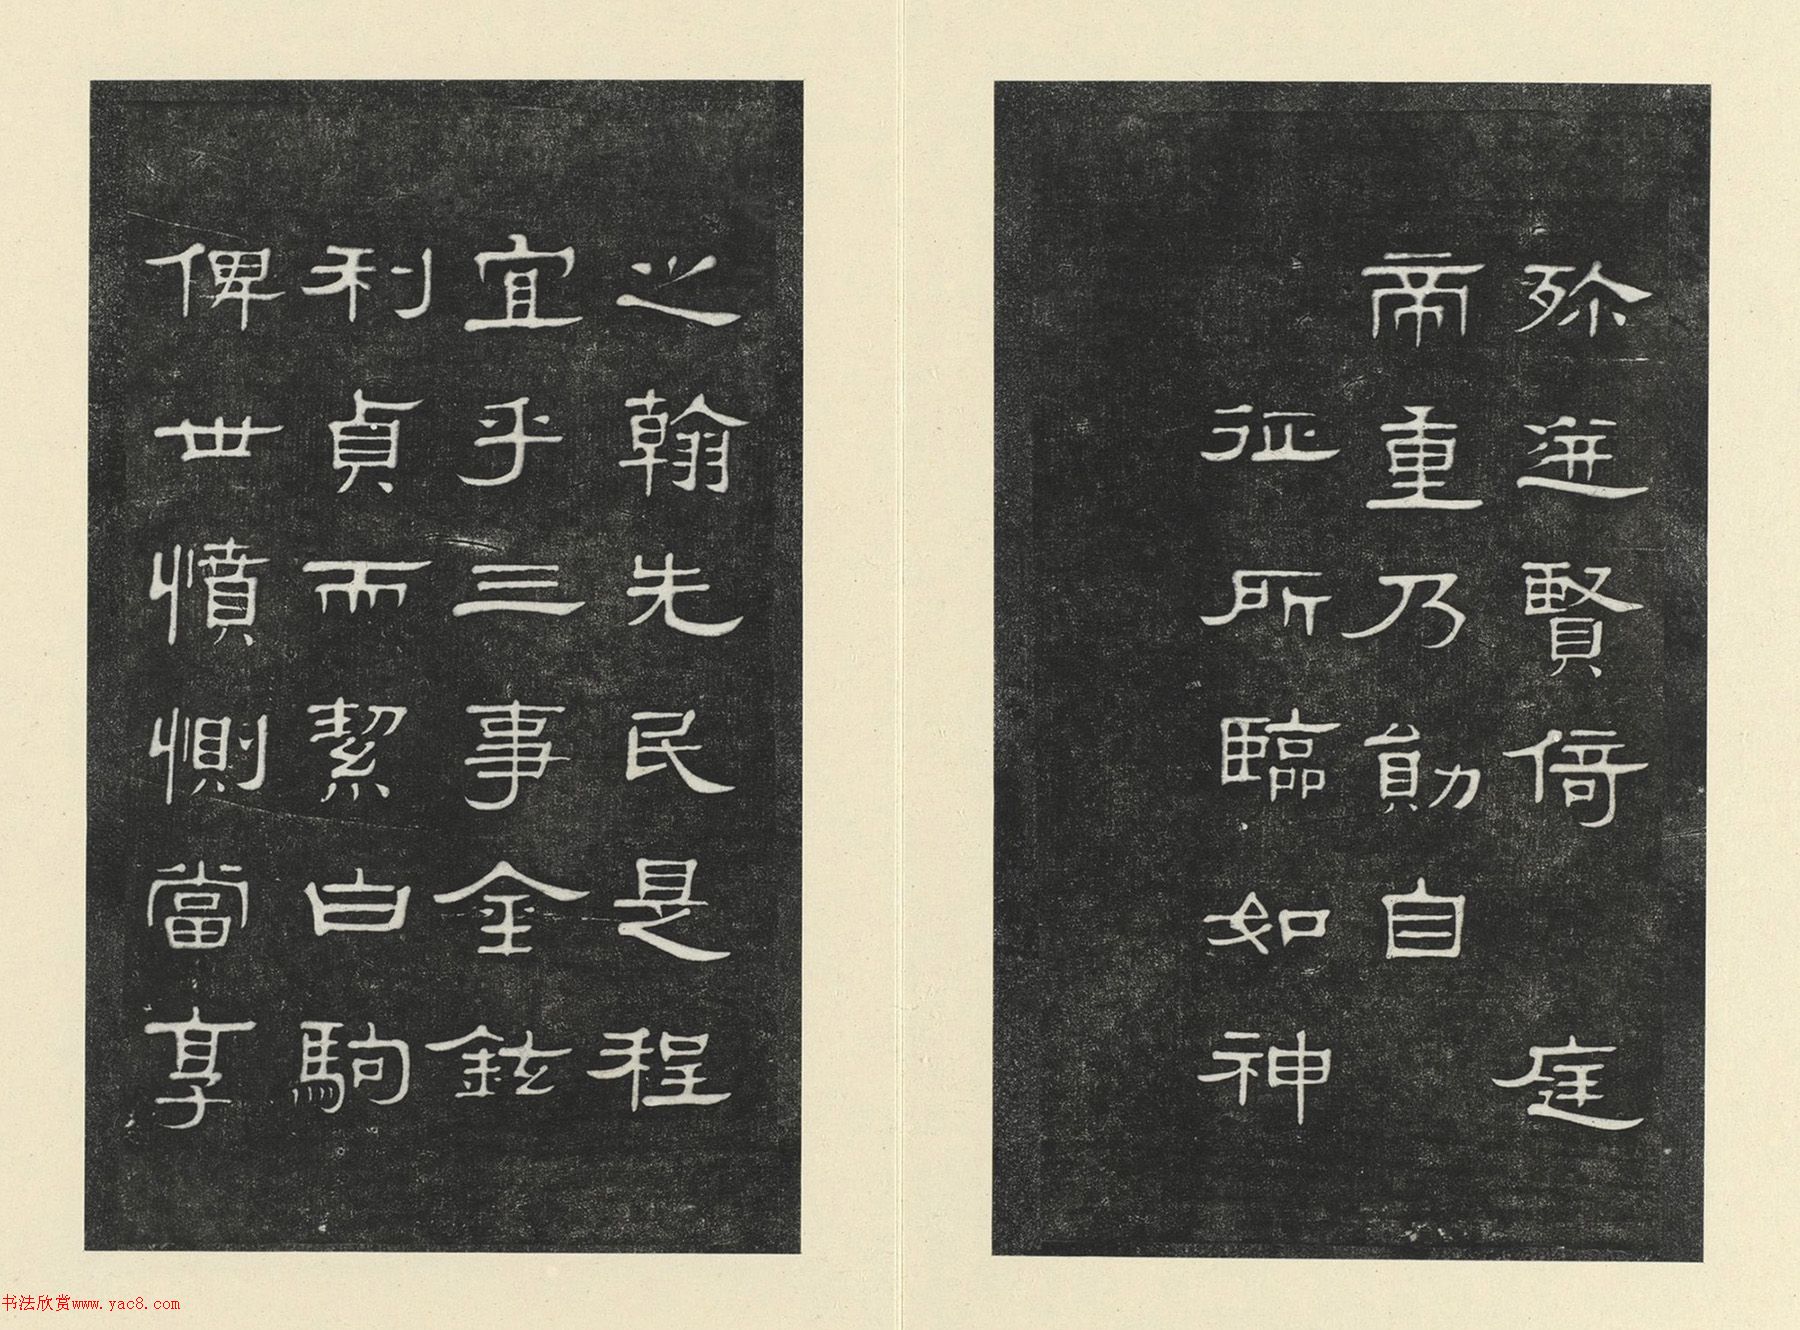 殄迸賢倚 庭
帝重乃勛自
征所臨如神
之翰先民是程
宜乎三事金鉉
利貞而絜白駒
俾世憤惻當享
书法欣赏www.yac8.com